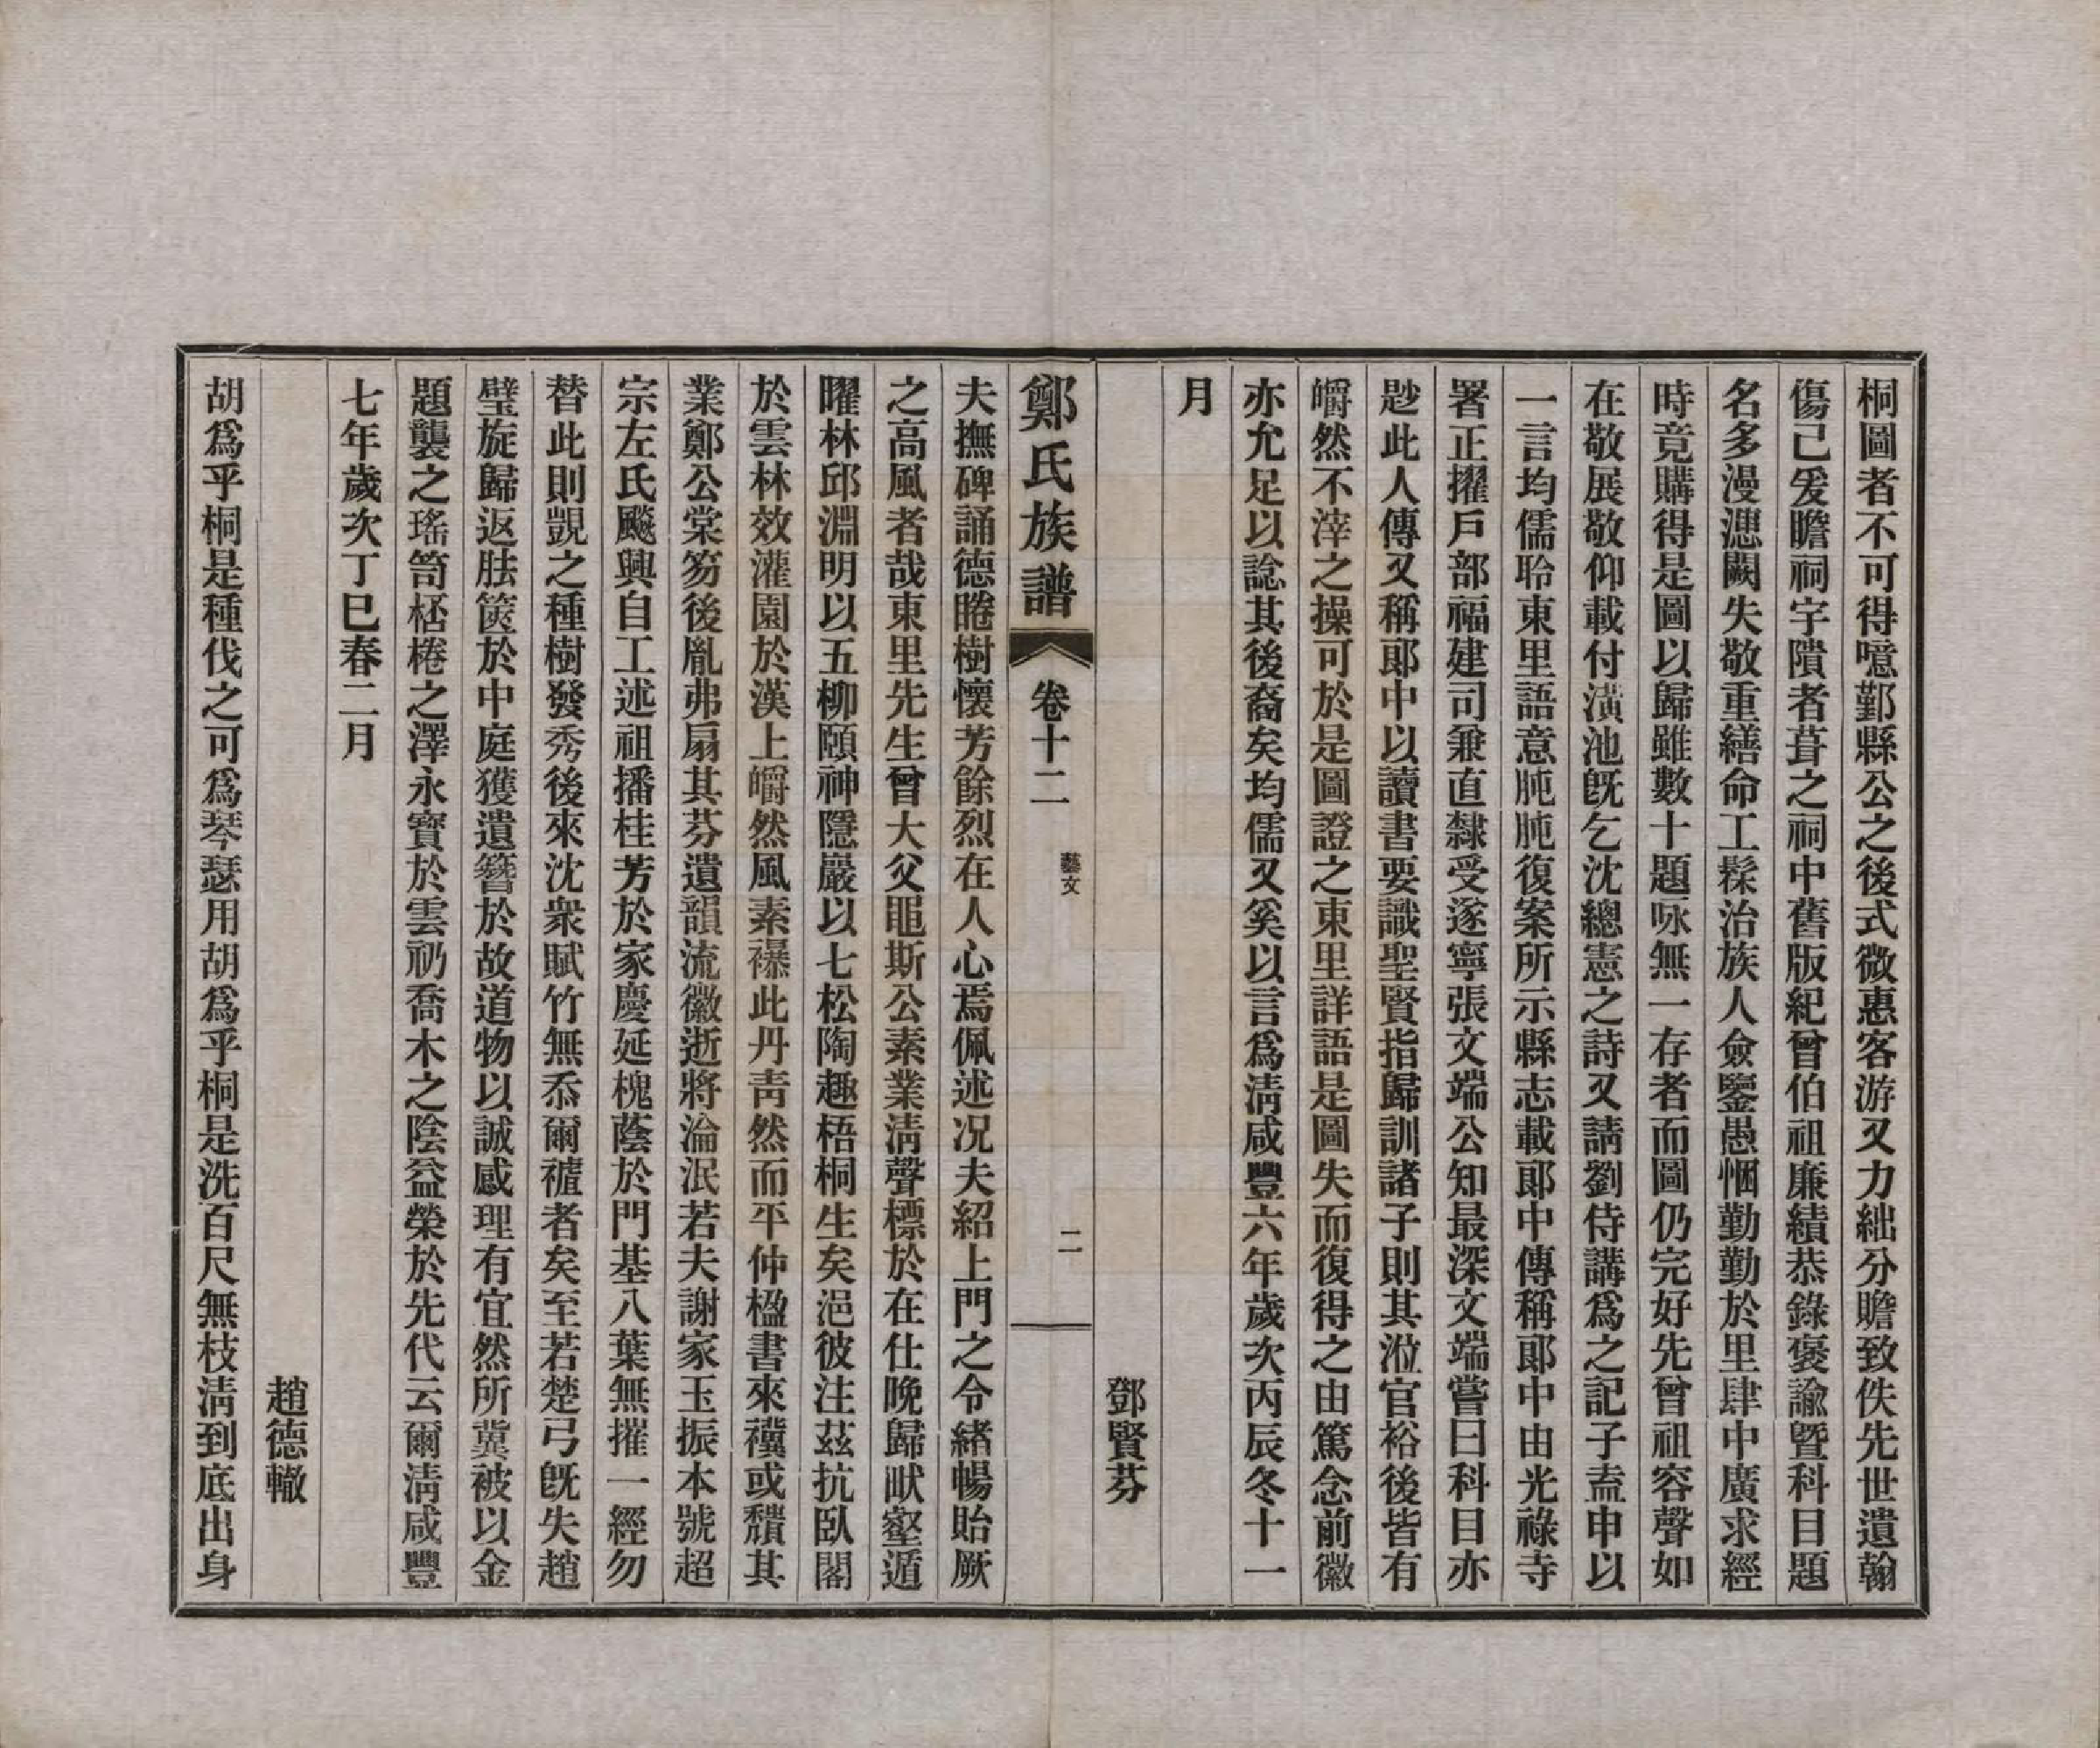 桐圖者不可得噫鄞縣公之後式微惠客游又力絀分贍致佚先世遺翰
傷已爰瞻祠宇隤者葺之祠中舊版紀曾伯祖廉績恭錄褒諭暨科目題
名多漫漶闕失敬重繕命工髹治族人僉鑒愚悃勤勤於里肆中廣求經
時竟購得是圖以歸雖數十題咏無一存者而圖仍完好先曾祖容聲如
在敬展敬仰載付潢池旣乞沈總憲之詩又請劉侍講爲之記子盍申以
一言均儒聆東里語意肫肫復案所示縣志載郞中傳稱郞中由光祿寺
署正擢戶部福建司兼直隸受遂寧張文端公知最深文端嘗曰科目亦
尟此人傳又稱郞中以讀書要識聖賢指歸訓諸子則其涖官裕後皆有
皭然不滓之操可於是圖證之東里詳語是圖失而復得之由篤念前徽
亦允足以諗其後裔矣均儒又奚以言爲淸咸豐六年歲次丙辰冬十一
月
鄧賢芬
鄭氏族譜
卷十二
藝文
二
夫撫碑誦德睠樹懷芳餘烈在人心焉佩述况夫紹上門之令緖暢貽厥
之高風者哉東里先生曾大父黽斯公素業淸聲標於在仕晚歸畎壑遁
曜林邱淵明以五柳頤神隱巖以七松陶趣梧桐生矣浥彼注茲抗臥閣
於雲林效灌園於漢上皭然風素襮此丹靑然而平仲楹書來禳或黷其
業鄭公棠笏後胤弗扇其芬遺韻流徽逝將淪泯若夫謝家玉振本號超
宗左氏飈興自工述祖播桂芳於家慶延槐蔭於門基八葉無摧一經勿
替此則覬之種樹發秀後來沈衆賦竹無忝爾禃者矣至若楚弓旣失趙
璧旋歸返胠篋於中庭獲遺簪於故道物以誠感理有宜然所冀被以金
題襲之瑤笥桮棬之澤永寶於雲礽喬木之陰益榮於先代云爾淸咸豐
七年歲次丁巳春二月
趙德轍
胡爲乎桐是種伐之可爲琴瑟用胡爲乎桐是洗百尺無枝淸到底出身